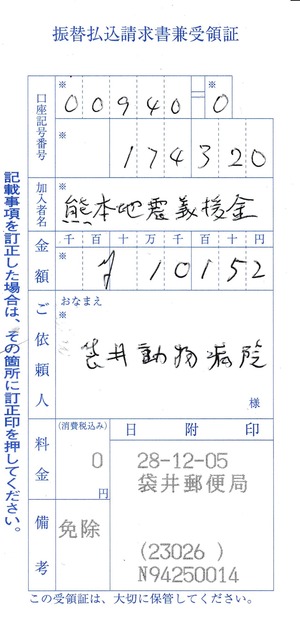 振替払込請求書兼受領証
口座記号番号
※
00940=0
※
174320
加入者名
※
熊本地震義援金
金額
千百十万千百十円
※
¥10152
ご依頼人
おなまえ
※
袋井動物病院
様
料金
(消費税込み)
0
円
備考
免除
日附印
28-12-05
袋井郵便局
(23026 )
N94250014
この受領証は、大切に保管してください。
記載事項を訂正した場合は、その箇所に訂正印を押してください。